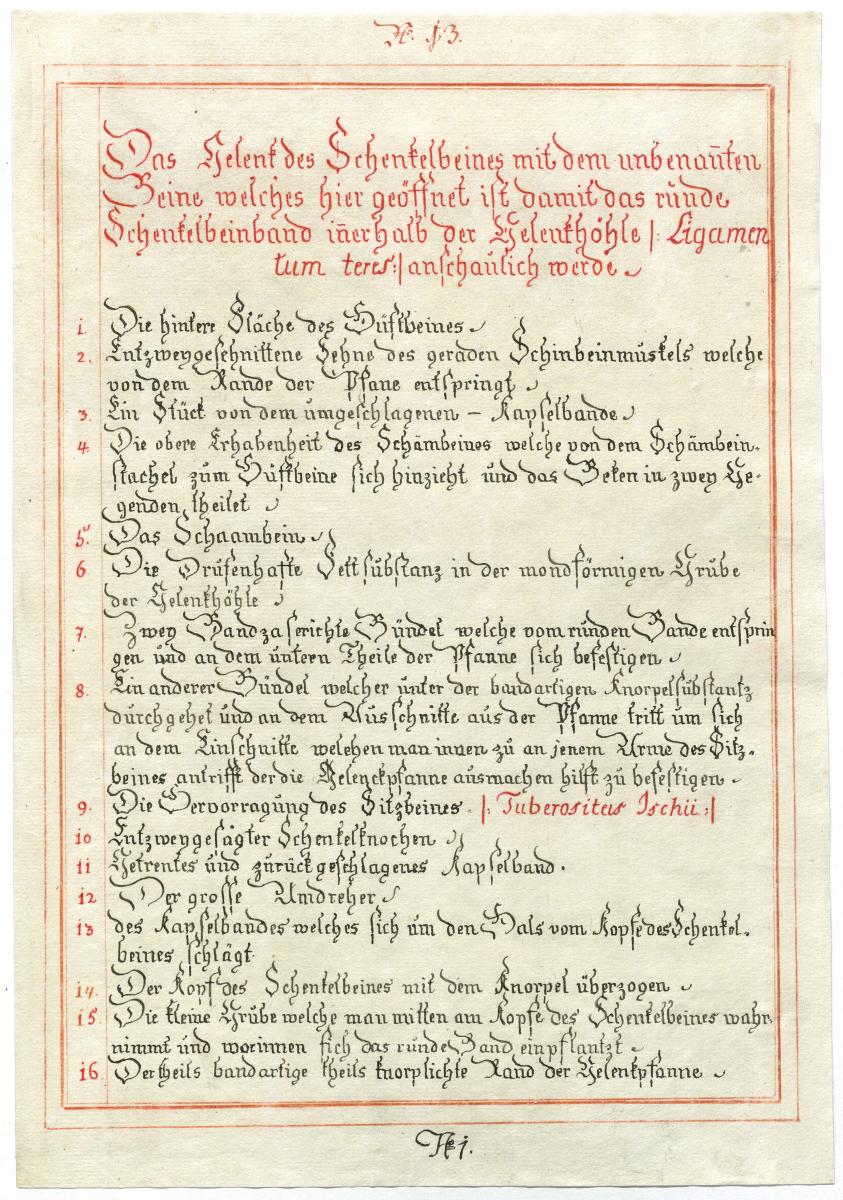 N. 13.
Das Gelenk des Schenkelbeines mit dem unbenan̄ten
Beine welches hier geöffnet ist damit das runde
Schenkelbeinband in̄erhalb der Gelenkhöhle |: Ligamen
tum teres :| anschaulich werde.
1. Die hintere Fläche des Hüftbeines.
2. Entzweygeschnittene Sehne des geraden Schinbeinmuskels welche
von dem Rande der Pfane entspringt.
3. Ein Stück von dem umgeschlagenen – Kapselbande.
4. Die obere Erhabenheit des Schambeines welche von dem Schambein-
stachel zum Hüftbeine sich hinzieht und das Beken in zwey Ge-
genden theilet
5. Das Schaambein.
6 Die Drüsenhafte Fettsubstanz in der mondförmigen Grube
der Gelenkhöhle
7. Zwey Bandzaserichte Bündel welche vom runden Bande entsprin
gen und an dem untern Theile der Pfanne sich befestigen.
8. Ein anderer Bündel welcher unter der bandartigen Knorpelsubstantz
durchgehet und an dem Ausschnitte aus der Pfanne tritt um sich
an dem Einschnitte welchen man innen zu an jenem Arme des Sitz-
beines antrifft der die Gelenckpfanne ausmachen hilft zu befestigen.
9. Die Hervorragung des Sitzbeines. |: Tuberositas Ischii :|
10 Entzweygesägter Schenkelknochen
11 Getrentes und zurückgeschlagenes Kapselband.
12 Der grosse Umdreher
13 des Kapselbandes welches sich um den Hals vom Kopfe des Schenkel-
beines schlägt
14. Der Kopf des Schenkelbeines mit dem Knorpel überzogen
15. Die kleine Grube welche man mitten am Kopfe des Schenkelbeines wahr
nimmt und worinnen sich das runde Band einpflantzt
16 Der theils bandartige theils knorplichte Rand der Gelenkpfanne